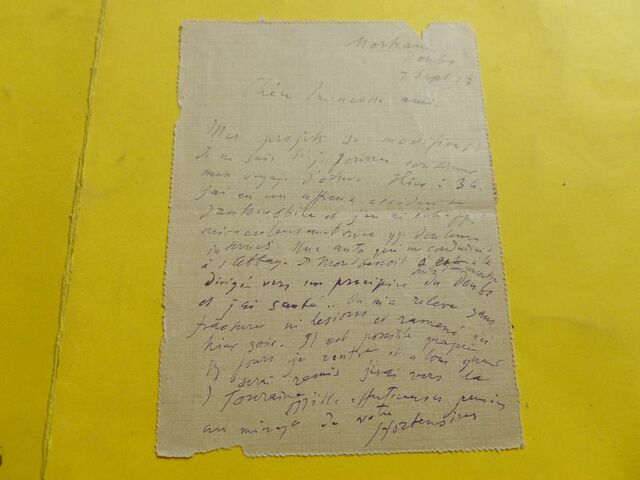 Morteau
Doubs
7 Sept 13
Chère Princesse amie
Mes projets se modifient
Je ne sais si je pourrai continuer
mon voyage d'études. Hier à 3 h.
j'ai eu un affreux accident
d'automobile et j'en ai échappé
miraculeusement avec qq. douleurs
internes. Une auto qui me conduisait
à l'Abbaye de Montbenoit
dirigée vers un précipice du Doubs
et j'ai sauté... On m'a relevé sans
fracture ni lésions et ramené ici
hier soir. Il est possible qu'après
qq. jours je rentre et
serai remis j'irai vers la
Touraine. Mille affectueuses pensées
au mirage de votre
Hortensias